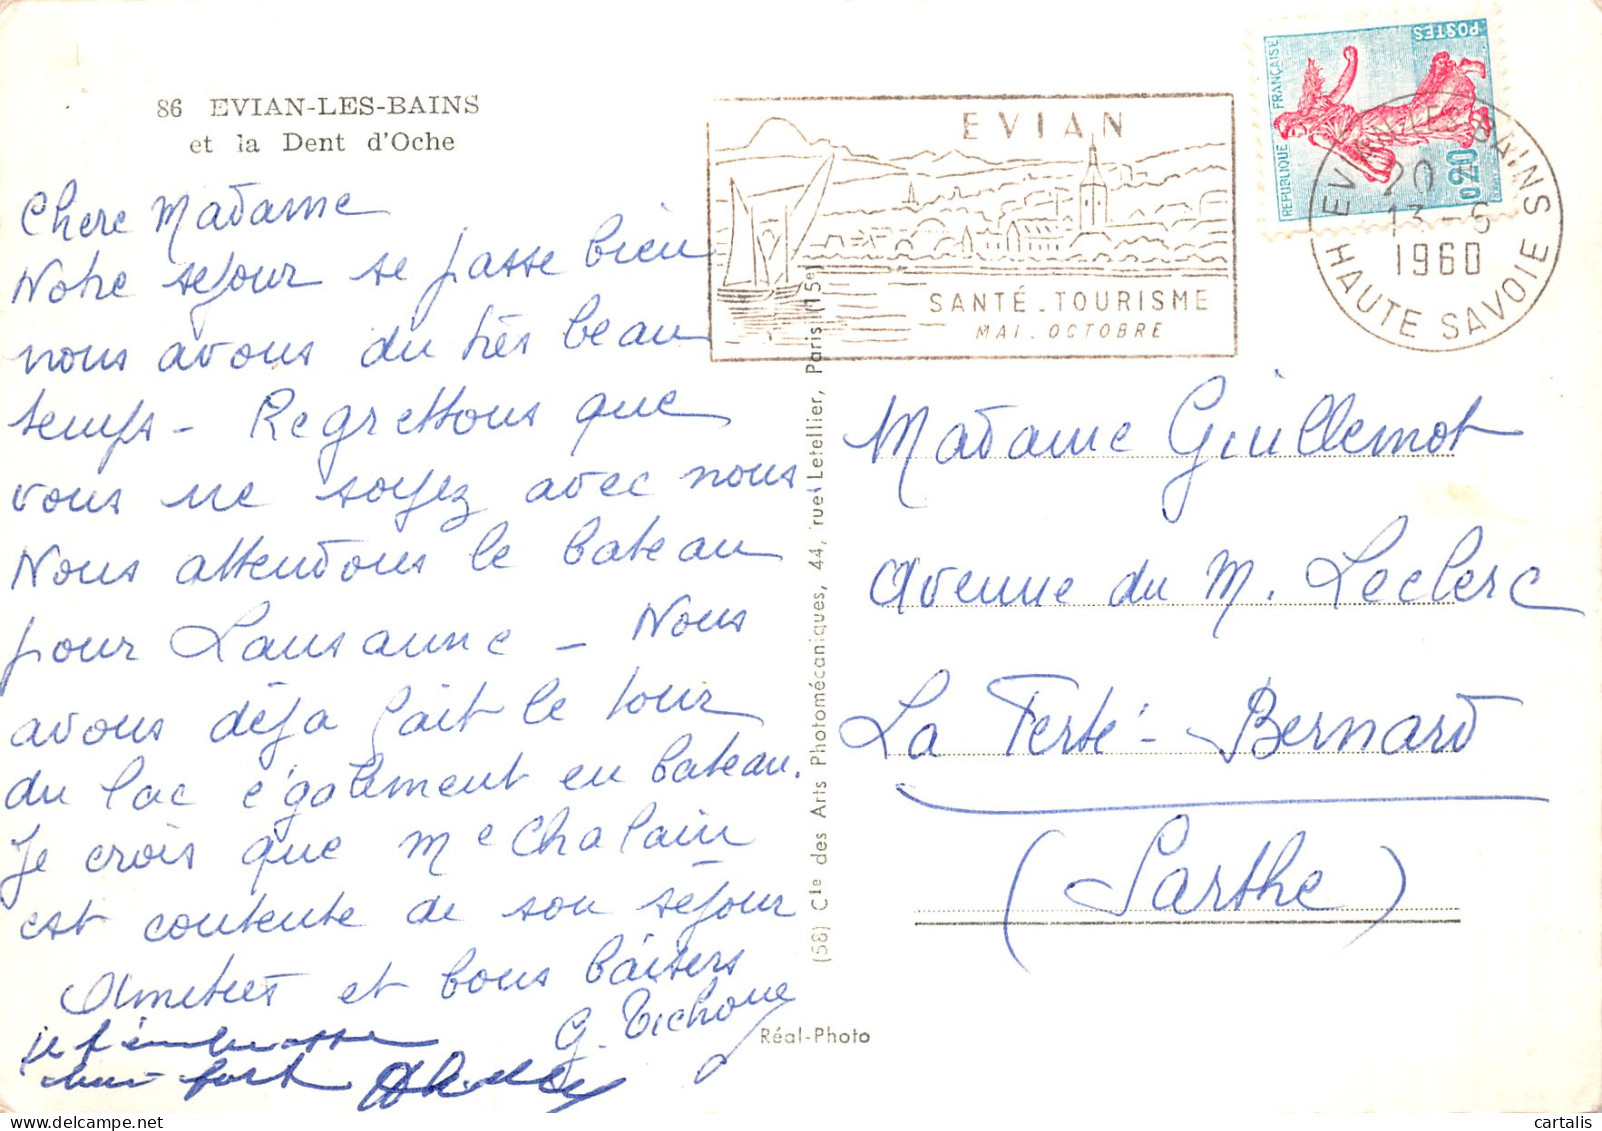 86 EVIAN-LES-BAINS
et la Dent d'Oche
Chere Madame
Notre séjour se passe bien
nous avons du très beau
temps - Regrettons que
vous ne soyez avec nous
Nous attendons le bateau
pour Lausanne - Nous
avons déja fait le tour
du lac également en bateau.
Je crois que Me Chalain
est contente de son séjour
Amitiés et bons baisers
je t'embrasse
bien fort
EVIAN
SANTÉ - TOURISME
MAI - OCTOBRE
REPUBLIQUE FRANÇAISE
POSTES
0,20
EVIAN-LES-BAINS
20
13 - 6
1960
HAUTE SAVOIE
(58) Cie des Arts Photomécaniques, 44, rue Letellier, Paris (15e)
Réal-Photo
Madame Guillemot
Avenue du M. Leclerc
La Ferté-Bernard
(Sarthe)
cartalis
www.delcampe.net